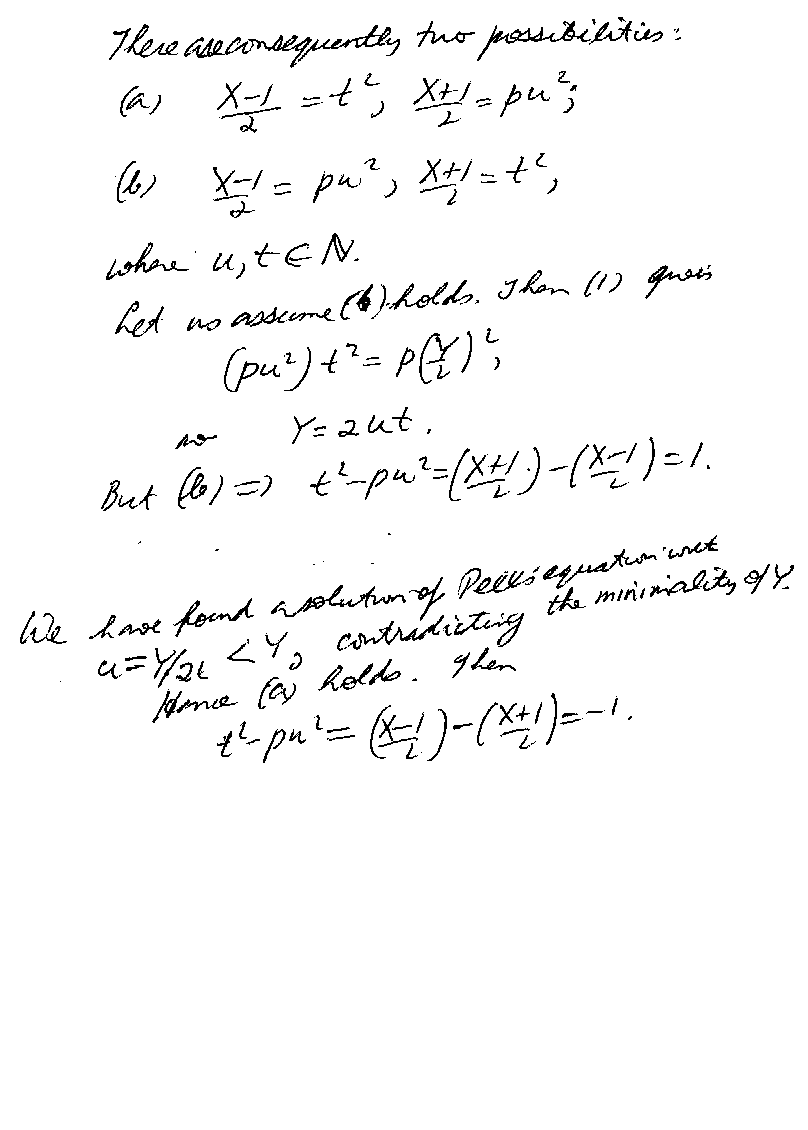 There are consequently two possibilities:
(a) (X-1)/2 = t², (X+1)/2 = pu²;
(b) (X-1)/2 = pu², (X+1)/2 = t²,
where u, t ∈ ℕ.
Let us assume (b) holds. Then (1) gives
(pu²) t² = p(Y/2)²,
so Y = 2ut.
But (b) ⇒ t² - pu² = ((X+1)/2) - ((X-1)/2) = 1.
We have found a solution of Pell's equation with
u = Y/2t < Y, contradicting the minimality of Y.
Hence (a) holds. Then
t² - pu² = ((X-1)/2) - ((X+1)/2) = -1.